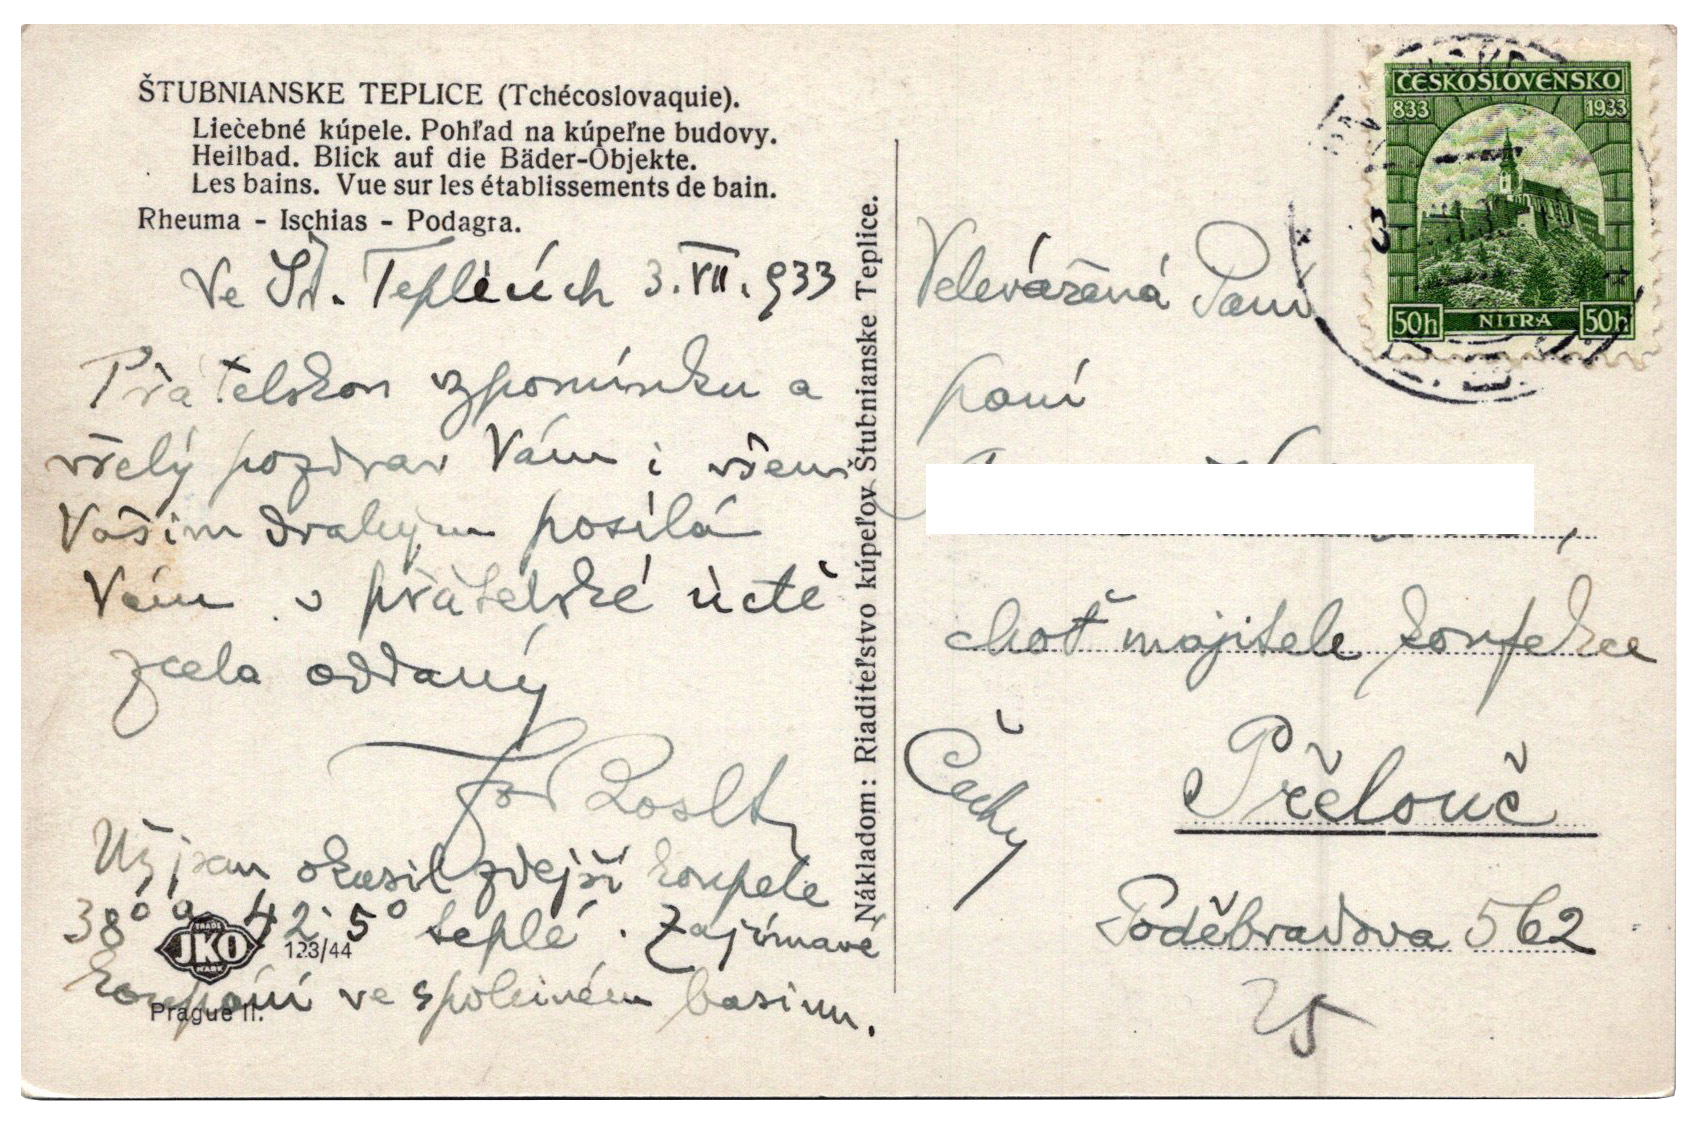 ŠTUBNIANSKE TEPLICE (Tchécoslovaquie).
Liečebné kúpele. Pohľad na kúpeľne budovy.
Heilbad. Blick auf die Bäder-Objekte.
Les bains. Vue sur les établissements de bain.
Rheuma - Ischias - Podagra.
Ve Št. Teplicích 3.VII.933
Přátelskou vzpomínku a
vřelý pozdrav Vám i všem
Vašim drahým posílá
Vám v přátelské úctě
zcela oddaný
Už jsem okusil zdejší koupele
38° a 42·5° teplé. Zajímavé
koupání ve společném basinu.
TRADE
JKO
MARK
123/44
Prague II.
Nákladom: Riaditeľstvo kúpeľov Štubnianske Teplice.
ČESKOSLOVENSKO
833 1933
50h NITRA 50h
Velevážená Paní
paní
choť majitele konfekce
Čechy
Přelouč
Poděbradova 562
25